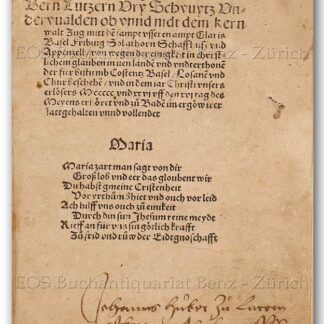 Bern Lutzern Ury Schwytz Un-
derwalden ob vnnd nidt dem kern
walt Zug mitt dē sampt vsseren ampt Glaris
Basel Friburg Solathorn Schaffhusē vnd
Appenzell / von wegen der einigkeit in christ-
lichem glauben in iren landē vnd vnderthonē
der fier bistumb Costentz Basel / Losanē vnd
Chur beschehē / vnd in dem iar Christi vnsers
erlösers
Meyens erhöret vnd zů Badē im ergöw
statt gehalten vnnd vollendet
Maria
Maria zart man sagt von dir
Groß lob vnd eer das gloubent wir
Du habst gmeine Cristenheit
Vor yrthům vnd ouch vor leid
Ach hilff vns ouch zů einikeit
Durch din sun Jhesum reine meydt
Rieff an für vns in götlich krafft
Zů frid vnd rüw der Eidtgnoschafft
Johannes Hüber Zů Lucern
EOS Buchantiquariat Benz - Zürich
EOS Buchantiquariat Benz - Zürich